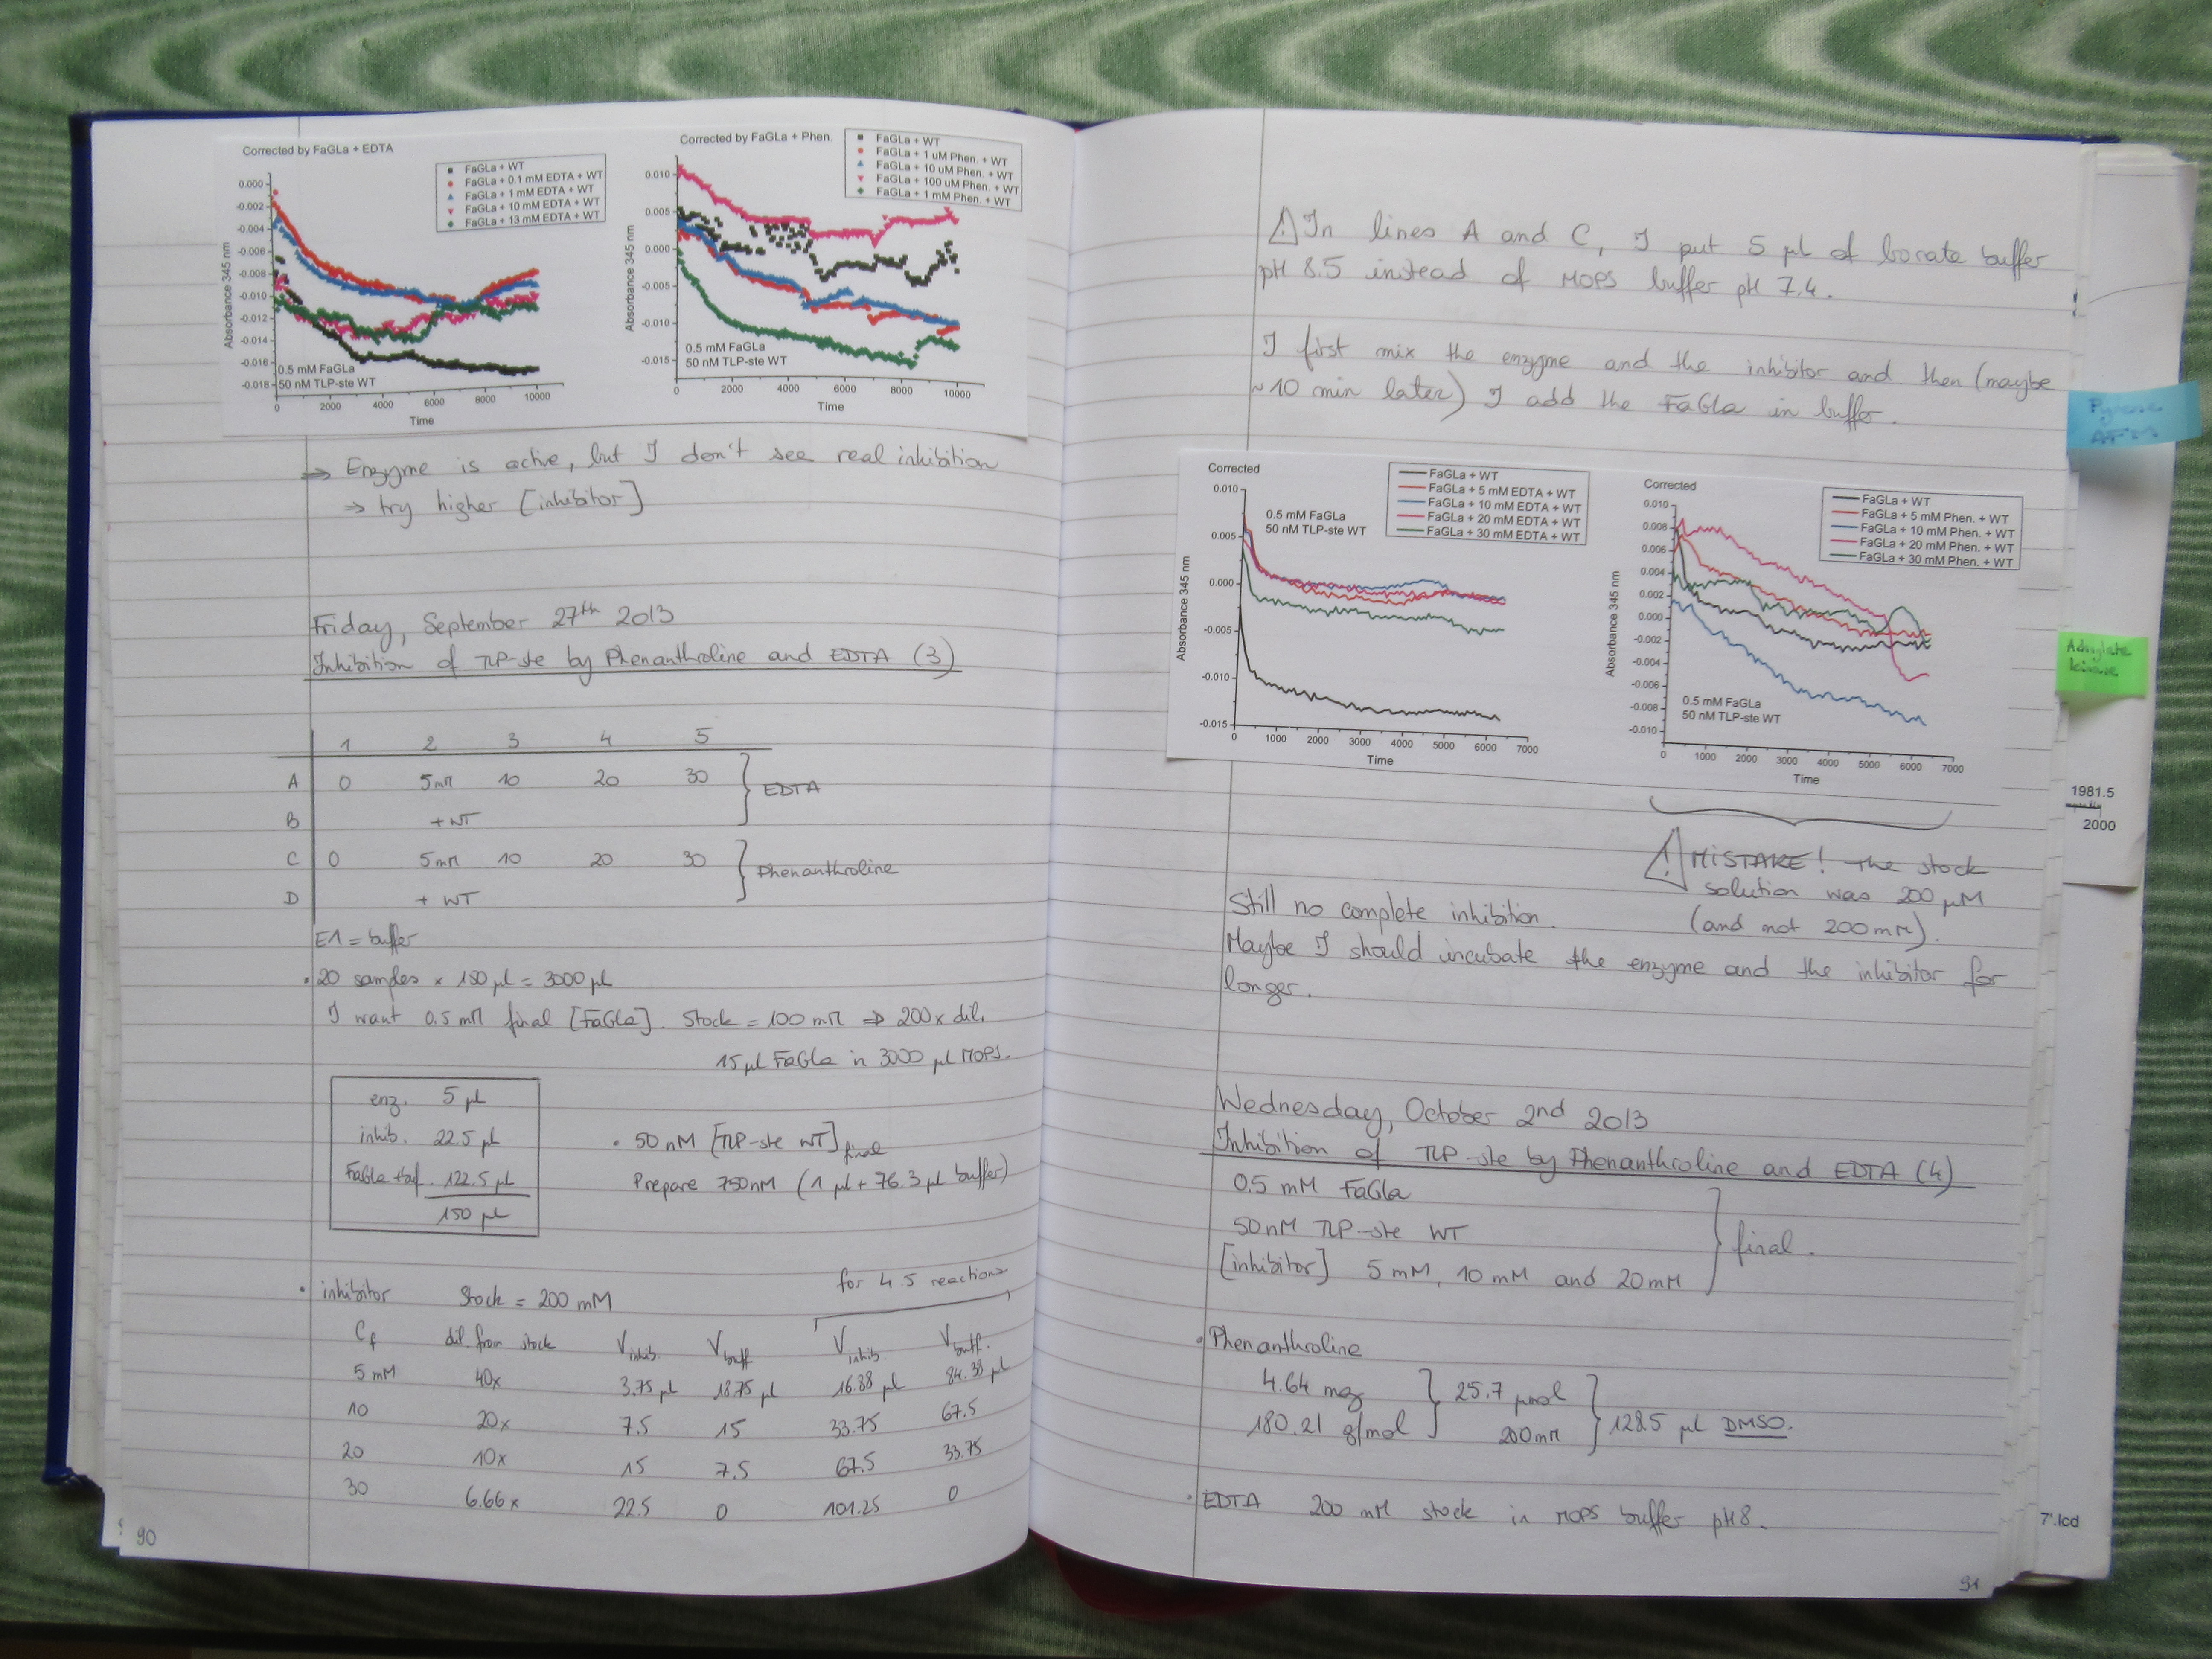 Corrected by FaGLa + EDTA
FaGLa + WT
FaGLa + 0.1 mM EDTA + WT
FaGLa + 1 mM EDTA + WT
FaGLa + 10 mM EDTA + WT
FaGLa + 13 mM EDTA + WT
Absorbance 345 nm
0.000
-0.002
-0.004
-0.006
-0.008
-0.010
-0.012
-0.014
-0.016
-0.018
0.5 mM FaGLa
50 nM TLP-ste WT
0 2000 4000 6000 8000 10000
Time
Corrected by FaGLa + Phen.
FaGLa + WT
FaGLa + 1 uM Phen. + WT
FaGLa + 10 uM Phen. + WT
FaGLa + 100 uM Phen. + WT
FaGLa + 1 mM Phen. + WT
Absorbance 345 nm
0.010
0.005
0.000
-0.005
-0.010
-0.015
0.5 mM FaGLa
50 nM TLP-ste WT
0 2000 4000 6000 8000 10000
Time
⇒ Enzyme is active, but I don't see real inhibition
⇒ try higher [inhibitor]
Friday, September 27th 2013
Inhibition of TLP-ste by Phenanthroline and EDTA (3)
1 2 3 4 5
A 0 5mM 10 20 30
EDTA
B + WT
C 0 5mM 10 20 30
Phenanthroline
D + WT
E1 = buffer
• 20 samples × 150 µl = 3000 µl
I want 0.5 mM final [FaGla]. Stock = 100 mM ⇒ 200x dil.
15 µl FaGla in 3000 µl MOPS.
enz. 5 µl
inhib. 22.5 µl
FaGla + buf. 122.5 µl
150 µl
• 50 nM [TLP-ste WT] final
Prepare 750nM (1 µl + 76.3 µl buffer)
• inhibitor Stock = 200 mM
for 4.5 reactions
Cf dil. from stock Vinhib. Vbuff Vinhib. Vbuff.
5 mM 40x 3.75 µl 18.75 µl 16.88 µl 84.38 µl
10 20x 7.5 15 33.75 67.5
20 10x 15 7.5 67.5 33.75
30 6.66x 22.5 0 101.25 0
90
⚠ In lines A and C, I put 5 µl of borate buffer
pH 8.5 instead of MOPS buffer pH 7.4.
I first mix the enzyme and the inhibitor and then (maybe
~10 min later) I add the FaGla in buffer.
Corrected
FaGLa + WT
FaGLa + 5 mM EDTA + WT
FaGLa + 10 mM EDTA + WT
FaGLa + 20 mM EDTA + WT
FaGLa + 30 mM EDTA + WT
0.5 mM FaGLa
50 nM TLP-ste WT
Absorbance 345 nm
0.010
0.005
0.000
-0.005
-0.010
-0.015
0 1000 2000 3000 4000 5000 6000 7000
Time
Corrected
FaGLa + WT
FaGLa + 5 mM Phen. + WT
FaGLa + 10 mM Phen. + WT
FaGLa + 20 mM Phen. + WT
FaGLa + 30 mM Phen. + WT
Absorbance 345 nm
0.010
0.008
0.006
0.004
0.002
0.000
-0.002
-0.004
-0.006
-0.008
-0.010
0.5 mM FaGLa
50 nM TLP-ste WT
0 1000 2000 3000 4000 5000 6000 7000
Time
⚠ MISTAKE! The stock
solution was 200 µM
(and not 200 mM).
Still no complete inhibition.
Maybe I should incubate the enzyme and the inhibitor for
longer.
Wednesday, October 2nd 2013
Inhibition of TLP-ste by Phenanthroline and EDTA (4)
0.5 mM FaGla
50 nM TLP-ste WT
[inhibitor] 5 mM, 10 mM and 20 mM
final.
• Phenanthroline
4.64 mg
180.21 g/mol
25.7 µmol
200 mM
128.5 µl DMSO.
• EDTA 200 mM stock in MOPS buffer pH 8.
91
Adenylate
kinase
1981.5
2000
7'.lcd